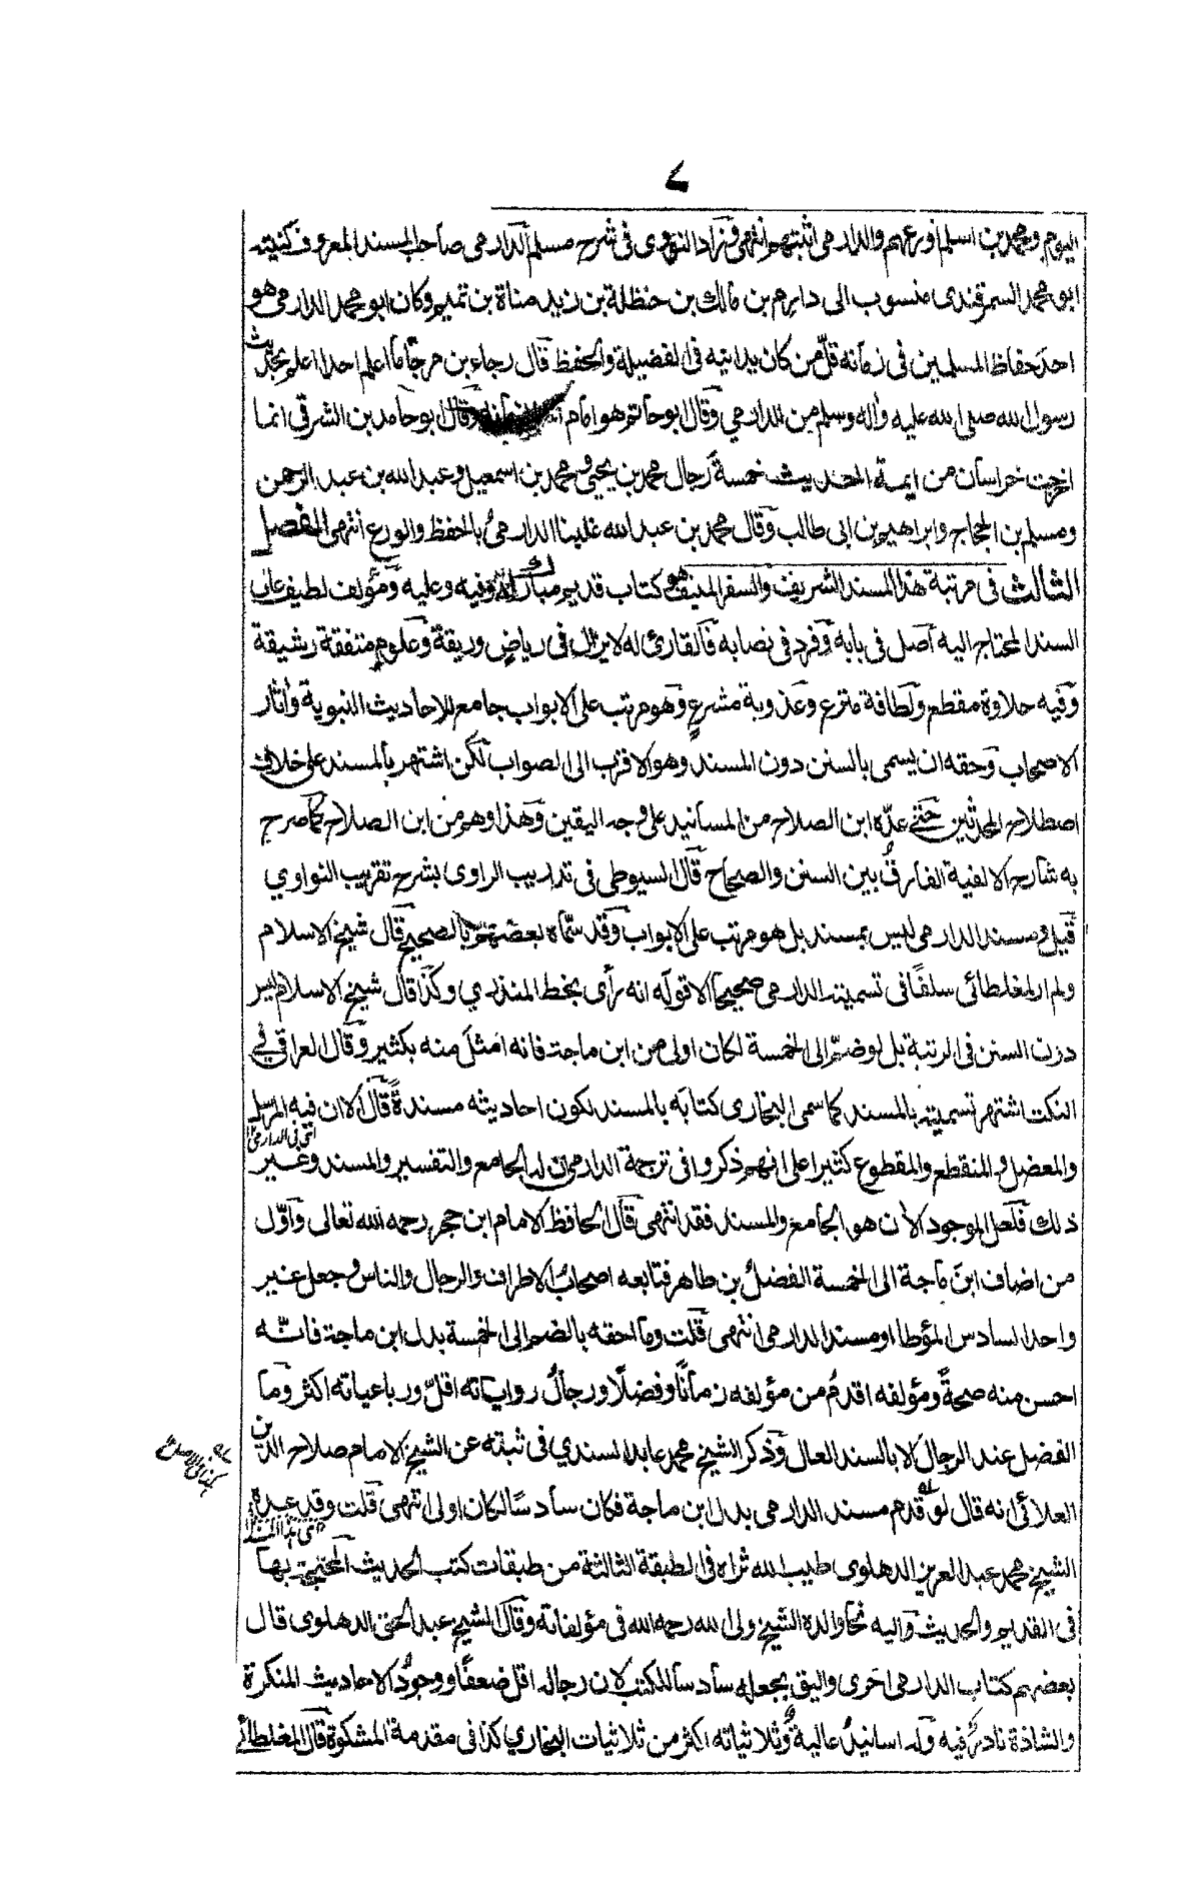 ٧
اليوم ومحمد بن اسلم اورعهم والدارمي اثبتهم انتهى وزاد النووى فى شرح مسلم الدارمى صاحب المسند المعروف كنيته
ابو محمد السمرقندى منسوب الى دارم بن مالك بن حنظلة بن زيد مناة بن تميم وكان ابو محمد الدارمى هو
احد حفاظ المسلمين فى زمانه قلّ من كان يدانيه فى الفضيلة والحفظ قال رجاء بن مرجّا ما اعلم احدا اعلم بحديث
رسول الله صلى الله عليه واله وسلم من الدارمي وقال ابو حاتم هو امام وقال ابو حامد بن الشرقي انما
اخرجت خراسان من ايمة الحديث خمسة رجال محمد بن يحيى ومحمد بن اسمعيل وعبد الله بن عبد الرحمن
ومسلم بن الحجاج وابراهيم بن ابى طالب وقال محمد بن عبد الله غلبنا الدارمىُ بالحفظ والورع انتهى الفصل
الثالث فى مرتبة هذا المسند الشريف والسفر المنيف هو كتاب قديم مبارك فيه وعليه ومؤلف لطيف عالى
السند المحتاج اليه أصل فى بابه وفرد فى نصابه فالقارئ له لا يزال فى رياضٍ وريقة وعلومٍ متفقة رشيقة
وفيه حلاوة مقطع ولطافة منزع وعذوبة مشرعٍ وهو مرتب على الابواب جامع للاحاديث النبوية وأثار
الاصحاب وحقه ان يسمى بالسنن دون المسند وهو الاقرب الى الصواب لكن اشتهر بالمسند على خلاف
اصطلاح المحدثين حتى عدّه ابن الصلاح من المسانيد على وجه اليقين وهذا وهم من ابن الصلاح كما صرح
به شارح الالفية الفارقُ بين السنن والصحاح قال السيوطى فى تدريب الراوى بشرح تقريب النواوي
قيل ومسند الدارمى ليس بمسند بل هو مرتب على الابواب وقد سمّاه بعضهم بالصحيح قال شيخ الاسلام
ولم ار لمغلطائى سلفًا فى تسمية الدارمى صحيحًا الا قوله انه رأى بخط المنذري وكذا قال شيخ الاسلام ليس
دون السنن فى الرتبة بل لو ضمّ الى الخمسة لكان اولى من ابن ماجة فانه امثل منه بكثير وقال العراقى فى
النكت اشتهر تسميته بالمسند كما سمى البخارى كتابه بالمسند لكون احاديثه مسندةً قال الا ان فيه المرسل
اى فى الدارمى ١٢
والمعضل والمنقطع والمقطوع كثيرا على انهم ذكروا فى ترجمة الدارمى ان له الجامع والتفسير والمسند وغير
ذلك فلعل الموجود الأن هو الجامع والمسند فقد انتهى قال الحافظ الامام ابن حجر رحمه الله تعالى وأوّل
من اضاف ابن ماجة الى الخمسة الفضلُ بن طاهر فتابعه اصحابُ الاطراف والرجال والناس وجعل غير
واحد السادس المؤطا او مسند الدارمى انتهى قلت وما احقه بالضم الى الخمسة بدل ابن ماجة فانّه
احسن منه صحةً ومؤلفه اقدمُ من مؤلفه زمانًا وفضلًا ورجالُ رواياته اقلّ ورباعياته اكثر وما
الفضل عند الرجال الا بالسند العال وذكر الشيخ محمد عابد السندي فى ثبته عن الشيخ الامام صلاح الدين
العلائى انه قال لو قدم مسند الدارمى بدل ابن ماجة فكان سادسًا لكان اولى انتهى قلت وقد عده
الشيخ محمد عبد العزيز الدهلوى طيب الله ثراه فى الطبقة الثالثة من طبقات كتب الحديث المحتج بها
فى القديم والحديث واليه نحا والده الشيخ ولى الله رحمه الله فى مؤلفاته وقال الشيخ عبد الحق الدهلوى قال
بعضهم كتاب الدارمى احرى واليق بجعله سادسا للكتب لان رجاله اقل ضعفًا ووجودُ الاحاديث المنكرة
والشاذة نادرٌ فيه وله اسانيدُ عالية وثلاثياته اكثر من ثلاثيات البخاري كذا فى مقدمة المشكوة قال المغلطائى